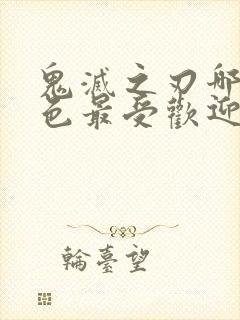 鬼滅之刃哪
色最受歡迎
輪臺望